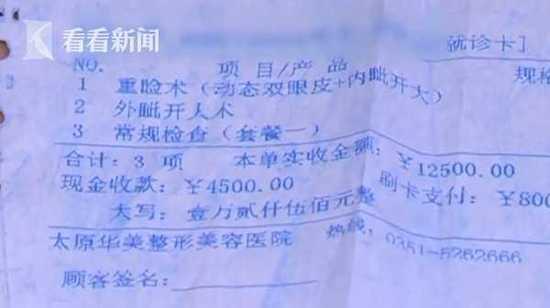 看看新闻
就诊卡]
NO. 项目/产品 规格
1 重睑术（动态双眼皮+内眦开大）
2 外眦开大术
3 常规检查（套餐一）
合计：3 项 本单实收金额：￥12500.00
现金收款：￥4500.00 刷卡支付：￥800
大写：壹万贰仟伍佰元整
太原华美整形美容医院 热线：0351-5262666
顾客签名：